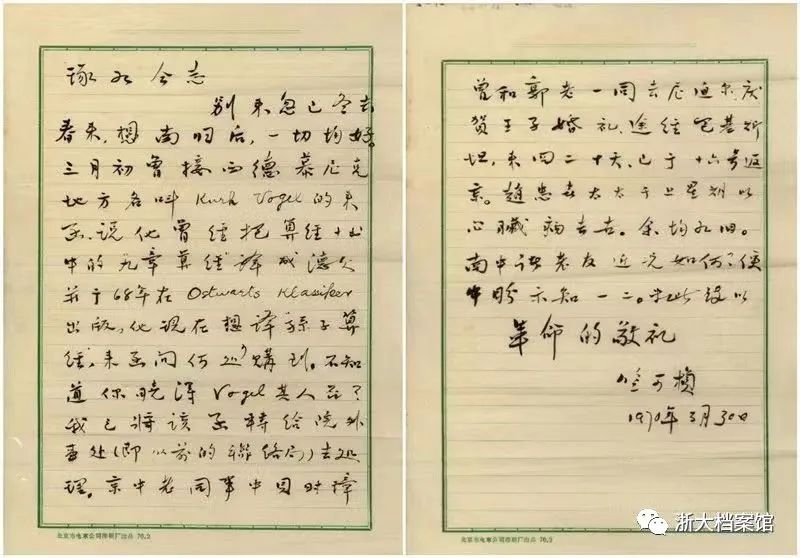 琢如同志
别来忽已冬去
春来，想南明后，一切均好。
三月初曾接西德慕尼克
地方名叫 Kurh Vogel 的来
函，说他曾经把算经十书
中的九章算经译成德文
并于68年在 Ostwarts Klasiker
出版，他现在想译孙子算
经，来函问何处购到。不知
道你晓得 Vogel 其人否？
我已将该函转给院外
事处（即以前的联络局）去处
理。京中老同事中
北京市电车公司印刷厂出品 70.2
曾和郭老一同去尼泊尔庆
贺王子婚礼，途经巴基斯
坦，来回二十天，已于十六号返
京。赵忠尧太太于上星期以
心臟病去世。余均如旧。
诸老友近况如何？便
中盼示知一二。专此致以
革命的敬礼
竺可楨
1970年3月30日
北京市电车公司印刷厂出品 70.2
浙大档案馆